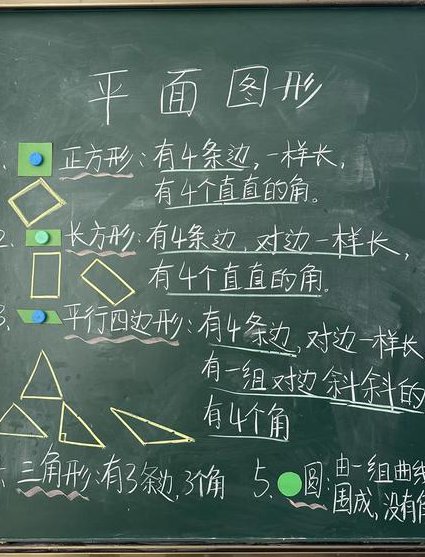 平面图形
正方形:有4条边,一样长,
有4个直直的角。
2. 长方形:有4条边,对边一样长,
有4个直直的角。
3. 平行四边形:有4条边,对边一样长
有一组对边斜斜的
有4个角
三角形:有3条边,3个角 5. 圆:由一组曲线
围成,没有角